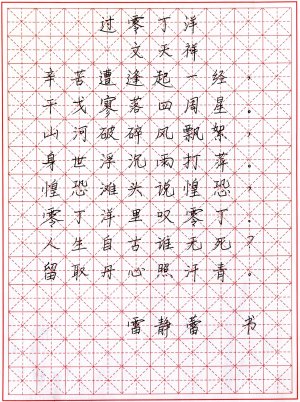 过零丁洋
文天祥
辛苦遭逢起一经，
干戈寥落四周星。
山河破碎风飘絮，
身世浮沉雨打萍。
惶恐滩头说惶恐，
零丁洋里叹零丁。
人生自古谁无死？
留取丹心照汗青。
雷静蕾 书